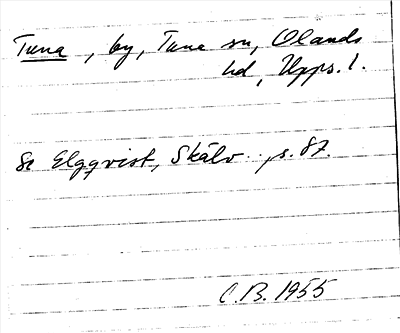 Tuna, by, Tuna sn, Olands
hd, Upps. l.
Se Elgqvist, Skälv.., s. 87.
C.B. 1955